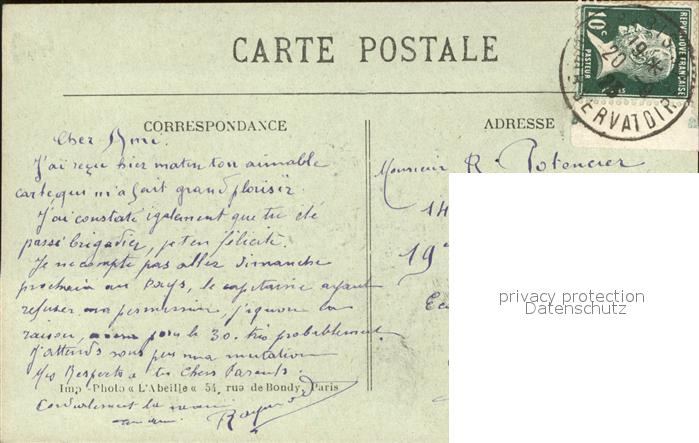 CARTE POSTALE
RÉPUBLIQUE FRANÇAISE
10 c
PASTEUR
19 *
20
OBSERVATOIRE
CORRESPONDANCE
ADRESSE
Cher Ami.
J'ai reçu hier matin ton aimable
carte, qui m'a fait grand plaisir.
J'ai constaté également que tu été
passé brigadier, je t'en félicite.
Je ne compte pas aller dimanche
prochain au Pays, le capitaine ayant
refuser ma permission, j'ignore la
raison, pour le 30. très probablement
J'attends sous peu ma mutation
Mes Respects a tes Chers Parents.
Imp.-Photo « L'Abeille « 54, rue de Bondy, Paris
Cordialement la main
ton ami. Raymond
Monsieur R. Potencier
14
19
privacy protection
Datenschutz